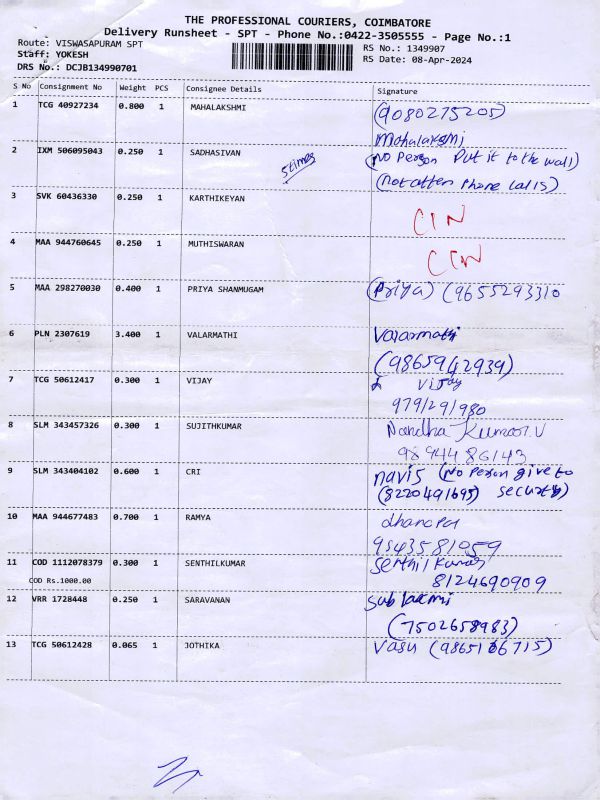 THE PROFESSIONAL COURIERS, COIMBATORE
Delivery Runsheet - SPT - Phone No.:0422-3505555 - Page No.:1
Route: VISWASAPURAM SPT
Staff: YOKESH
DRS No.: DCJB134990701
RS No.: 1349907
RS Date: 08-Apr-2024
S No Consignment No Weight PCS Consignee Details Signature
1 TCG 40927234 0.800 1 MAHALAKSHMI (9080275205)
mahalakshmi
2 IXM 506095043 0.250 1 SADHASIVAN 5 times (NO Person Put it to the wall)
(not atten Phone calls)
3 SVK 60436330 0.250 1 KARTHIKEYAN CIN
4 MAA 944760645 0.250 1 MUTHISWARAN CIN
5 MAA 298270030 0.400 1 PRIYA SHANMUGAM (Priya) (9655293310
6 PLN 2307619 3.400 1 VALARMATHI Valarmathi
(9865942939)
7 TCG 50612417 0.300 1 VIJAY Vijay
979/291/980
8 SLM 343457326 0.300 1 SUJITHKUMAR Nandha Kumar.V
9894486143
9 SLM 343404102 0.600 1 CRI navis (No Person give to
(8220491695) security)
10 MAA 944677483 0.700 1 RAMYA
9543581059
11 COD 1112078379 0.300 1 SENTHILKUMAR Senthil Kumar
COD Rs.1000.00 8124690909
12 VRR 1728448 0.250 1 SARAVANAN Sublaxmi
(7502658983)
13 TCG 50612428 0.065 1 JOTHIKA Vasu (9865166715)